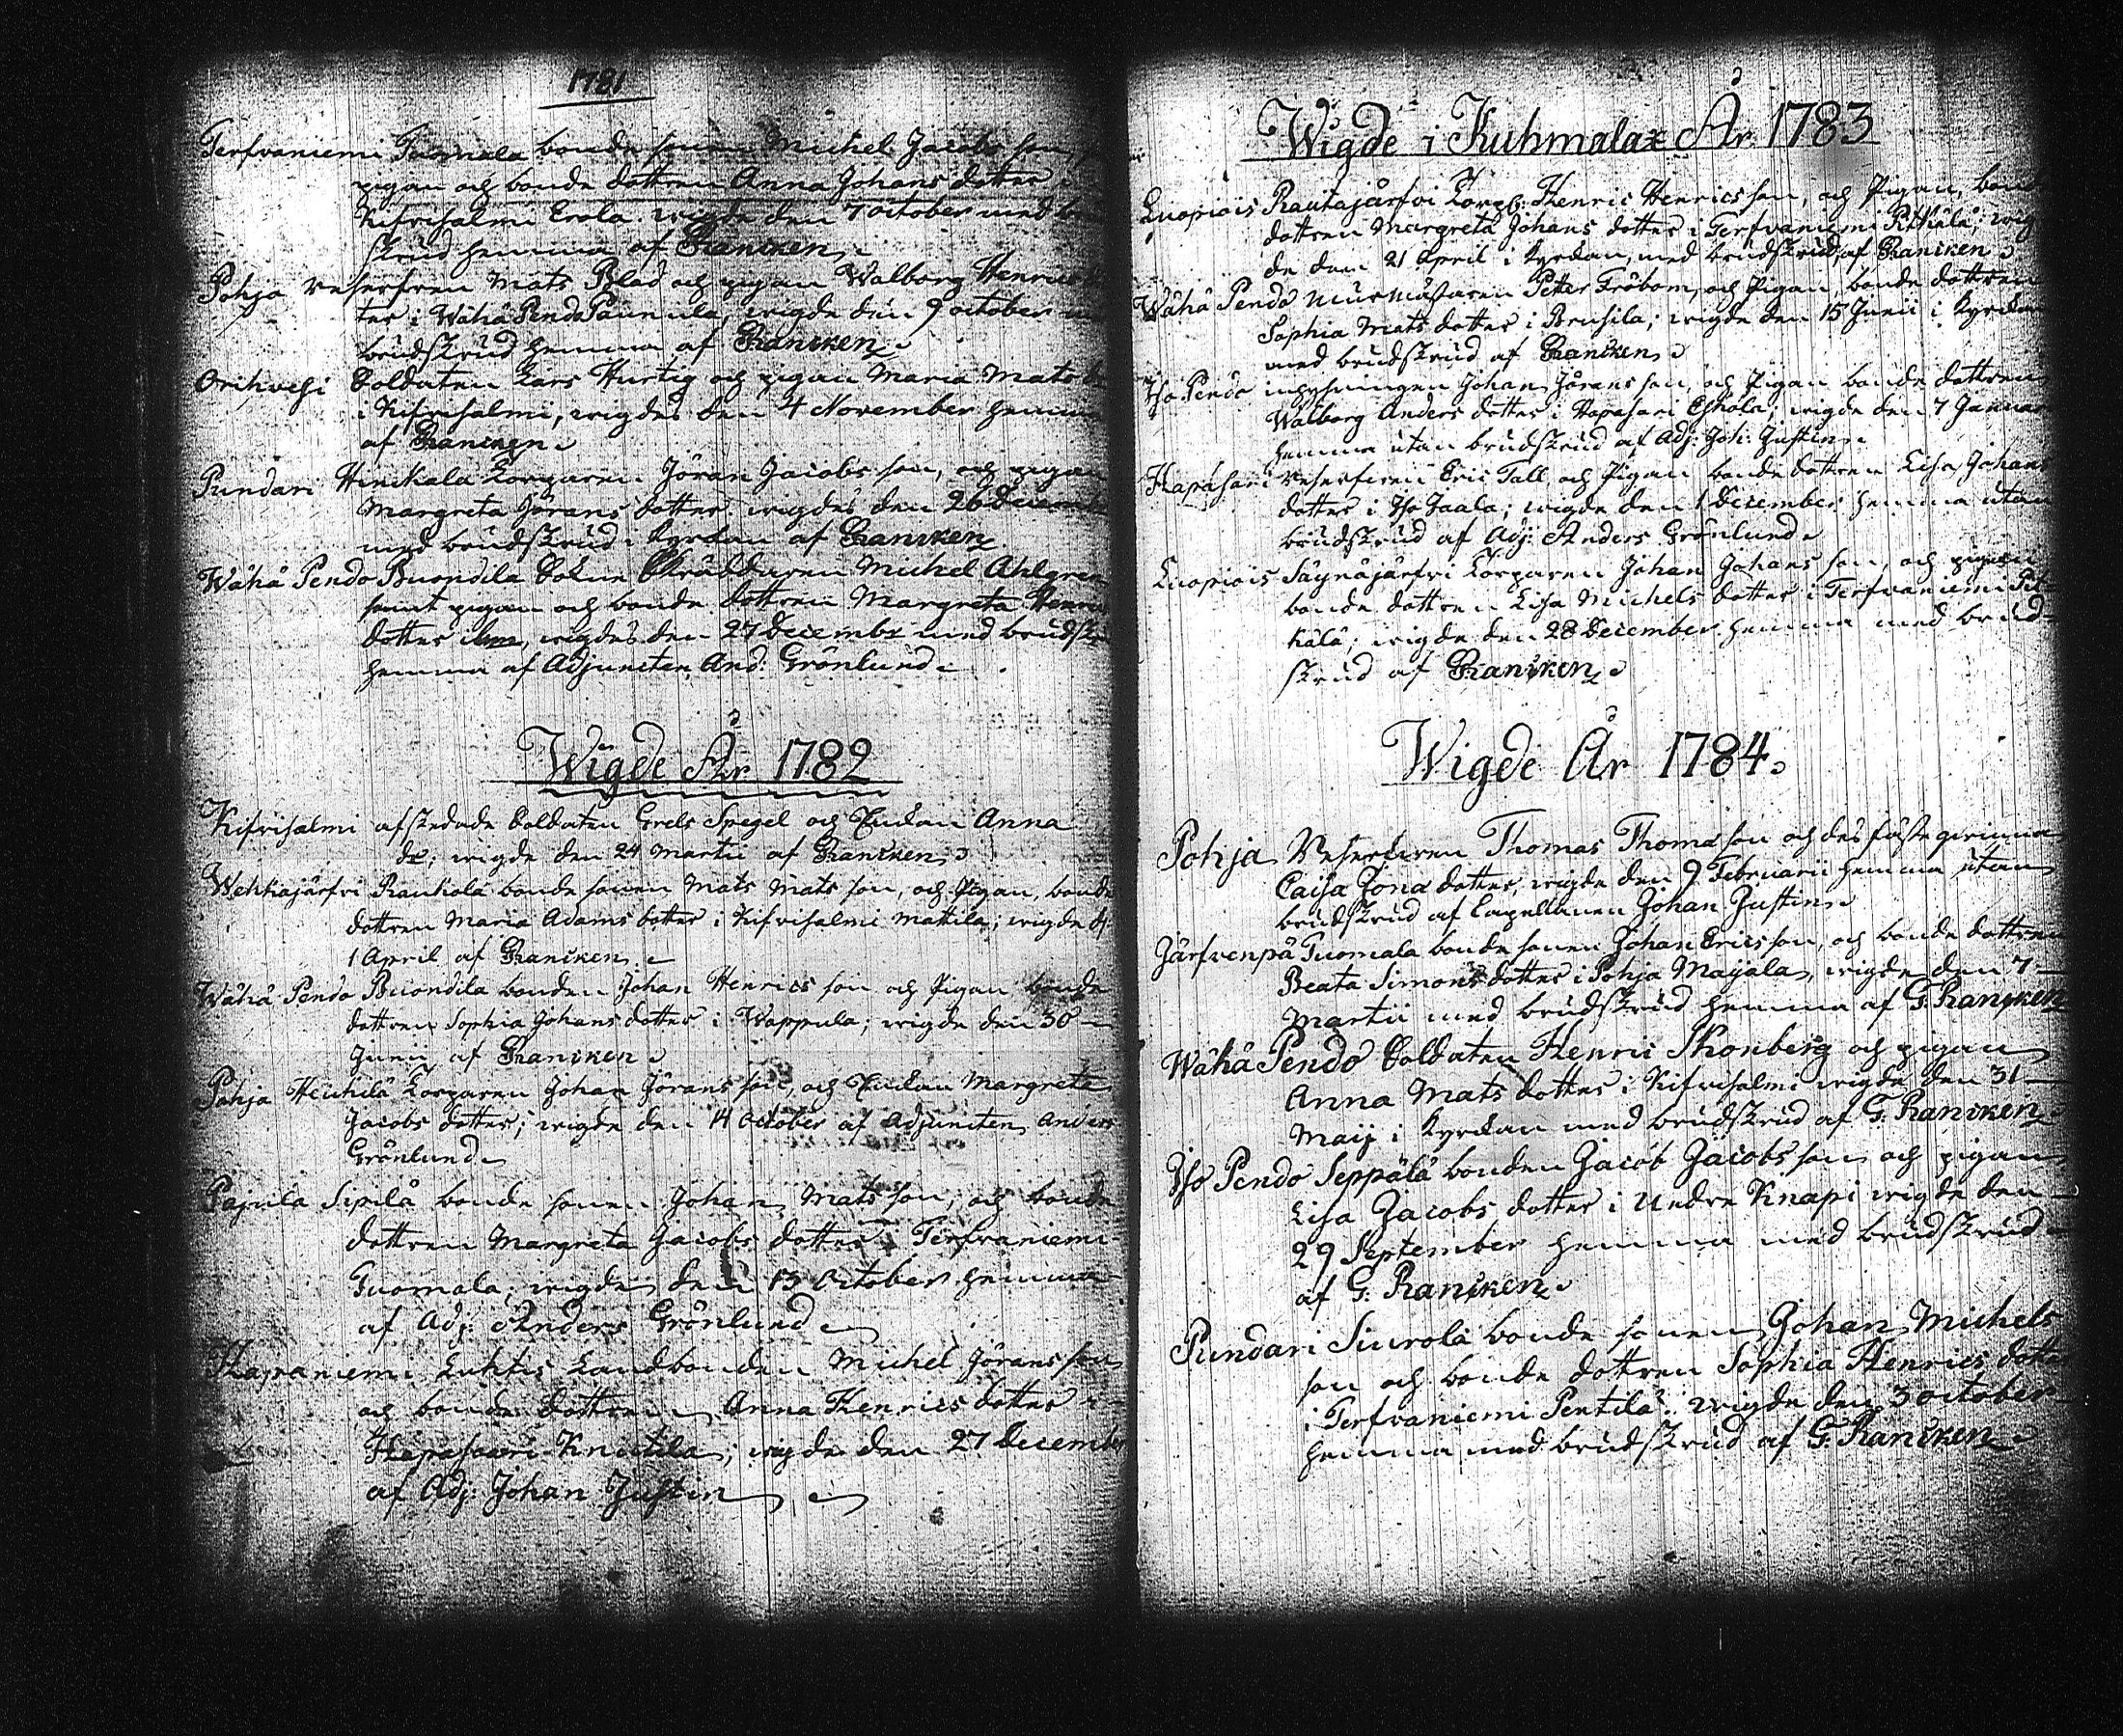 1781
Terfvaniemi Tuomala bonde sonen Michel Jacobs son,
pigan och bonde dottren Anna Johans dotter i
Kifvisalmi Erola. wigde den 7 october med
skrud hemma af Rancken
Pohja reserfven Mats Blad och pigan Walborg Henrics
ter i Wähä Pendo Paunula, wigde den 9 october
brudskrud hemma af Rancken
Orihvesi Soldaten Lars Hurtig och pigan Maria Mats
i Kifvisalmi, wigdes den 4 November hemma
af Rancken
Pundari Hinikala Torparen Jöran Jacobs son, och pigan
Margreta Jörans dotter wigdes den 26 Decem
med brudskrud i Kyrkan af Rancken
Wähä Pendo Buondila Sokne Skräddaren Michel Ahlgren
samt pigan och bonde dottren Margreta Henrics
dotter wigdes den 27 Decembr med brudskr
hemma af Adjuncten And: Grönlund
Wigde År 1782
Kifvisalmi afskedade Soldaten Grels Spegel och Enkan Anna
wigde den 24 Martii af Rancken
Wehkajärfvi Raukola bonde sonen Mats Mats son, och Pigan, bonde
dottren Maria Adams dotter i Kifvisalmi Mattila; wigde d:
1 April af Rancken
Wähä Pendo Buondila bonden Johan Henrics son och Pigan bonde
dottren Sophia Johans dotter i Wappula; wigde den 30
Junii af Rancken
Pohja Heickilä Torparen Johan Jörans son, och Enkan Margreta
Jacobs dotter; wigde den 14 October af Adjuncten Anders
Grönlund
Pajula Sipilä bonde sonen Johan Mats son, och bonde
dottren Margreta Jacobs dotter i Terfvaniemi
Tuomala; wigde den 13 October hemma
af Adj: Anders Grönlund
Hapaniemi Luhtis Landbonden Michel Jörans son
och bonde dottren Anna Henrics dotter i
Hapasaari Knutila; wigde den 27 Decembr
af Adj: Johan Justin
Wigde i Kuhmalax År 1783
Luopiois Rautajärfvi Torp: Henric Henrics son, och Pigan, bonde
dottren Margreta Johans dotter i Terfvaniemi Pitkälä; wig
de den 21 April i Kyrckan, med brudskrud, af Rancken
Wähä Pendo Murmästaren Petter Fröbom, och Pigan, bonde dottren
Sophia Mats dotter i Brusila; wigde den 15 Junii i Kyrckan
med brudskrud af Rancken
Iso Pendo inhysningen Johan Jörans son, och Pigan bonde dottren
Walborg Anders dotter i Hapasari Eskola; wigde den 7 Januar
hemma utan brudskrud af Adj: Joh: Justin
Hapasari reserfven Eric Tall och Pigan bonde dottren Lisa Johans
dotter i Iso Jaala; wigde den 1 December hemma utan
brudskrud af Adj: Anders Grönlund
Luopiois Säynäjärfvi Torparen Johan Johans son, och pigan
bonde dottren Lisa Michels dotter i Terfvaniemi Pit
källä; wigde den 28 December hemma med brud-
skrud af Rancken
Wigde År 1784
Pohja Reserfven Thomas Thomasson och des fäste qwinna
Caisa Jona dotter, wigde den 9 Februarii hemma utan
brudskrud af Capellanen Johan Justin
Järfvenpä Tuomala bonde sonen Johan Erics son, och bonde dottren
Beata Simons dotter i Pohja Maijala, wigde den 7
Martii med brudskrud hemma af G: Rancken
Wähä Pendo Soldaten Henric Skonberg och pigan
Anna Mats dotter i Kifvisalmi wigde den 31
Maij i Kyrckan med brudskrud af G: Rancken
Iso Pendo Seppälä bonden Jacob Jacobs son och pigan
Lisa Jacobs dotter i Undre Knapi wigde den
29 September hemma med brudskrud
af G: Rancken
Pundari Siurola bonde sonen Johan Michels
son och bonde dottren Sophia Henrics dotter
i Terfvaniemi Pentilä: wigde den 3 october
hemma med brudskrud af G: Rancken